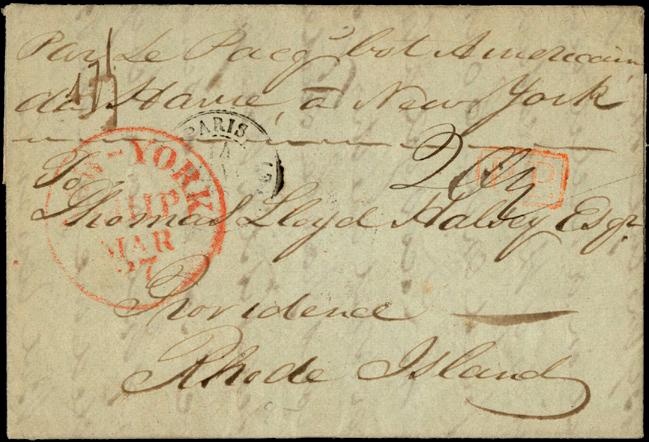 Par Le Pacq'bot Americain
du Havre, a New York
PARIS
NEW-YORK
SHIP
MAR
27
PP
To
Thomas Lloyd Halsey Esqr
Providence
Rhode Island